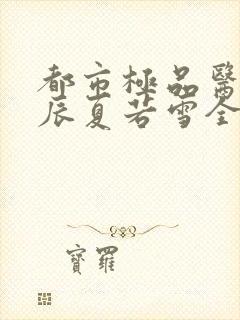 都市極品醫
辰夏若雪全
寶羅